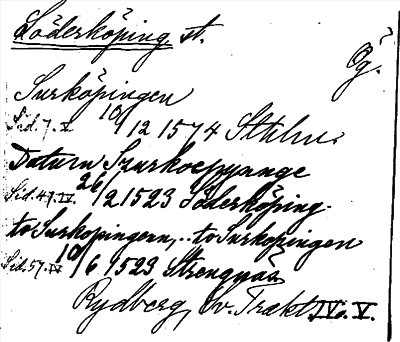 Söderköping st.
Ög.
Surköpingen
Sid. 7. V 10/12 1574 Sthlm.
Datum Szurkoepyynge
Sid. 47. IV. 26/2 1523 Söderköping.
to Surkopingern, .. to Surkopingen
Sid. 57. IV 10/6 1523 Strengnäs
Rydberg, Sv. Trakt. IV. V.